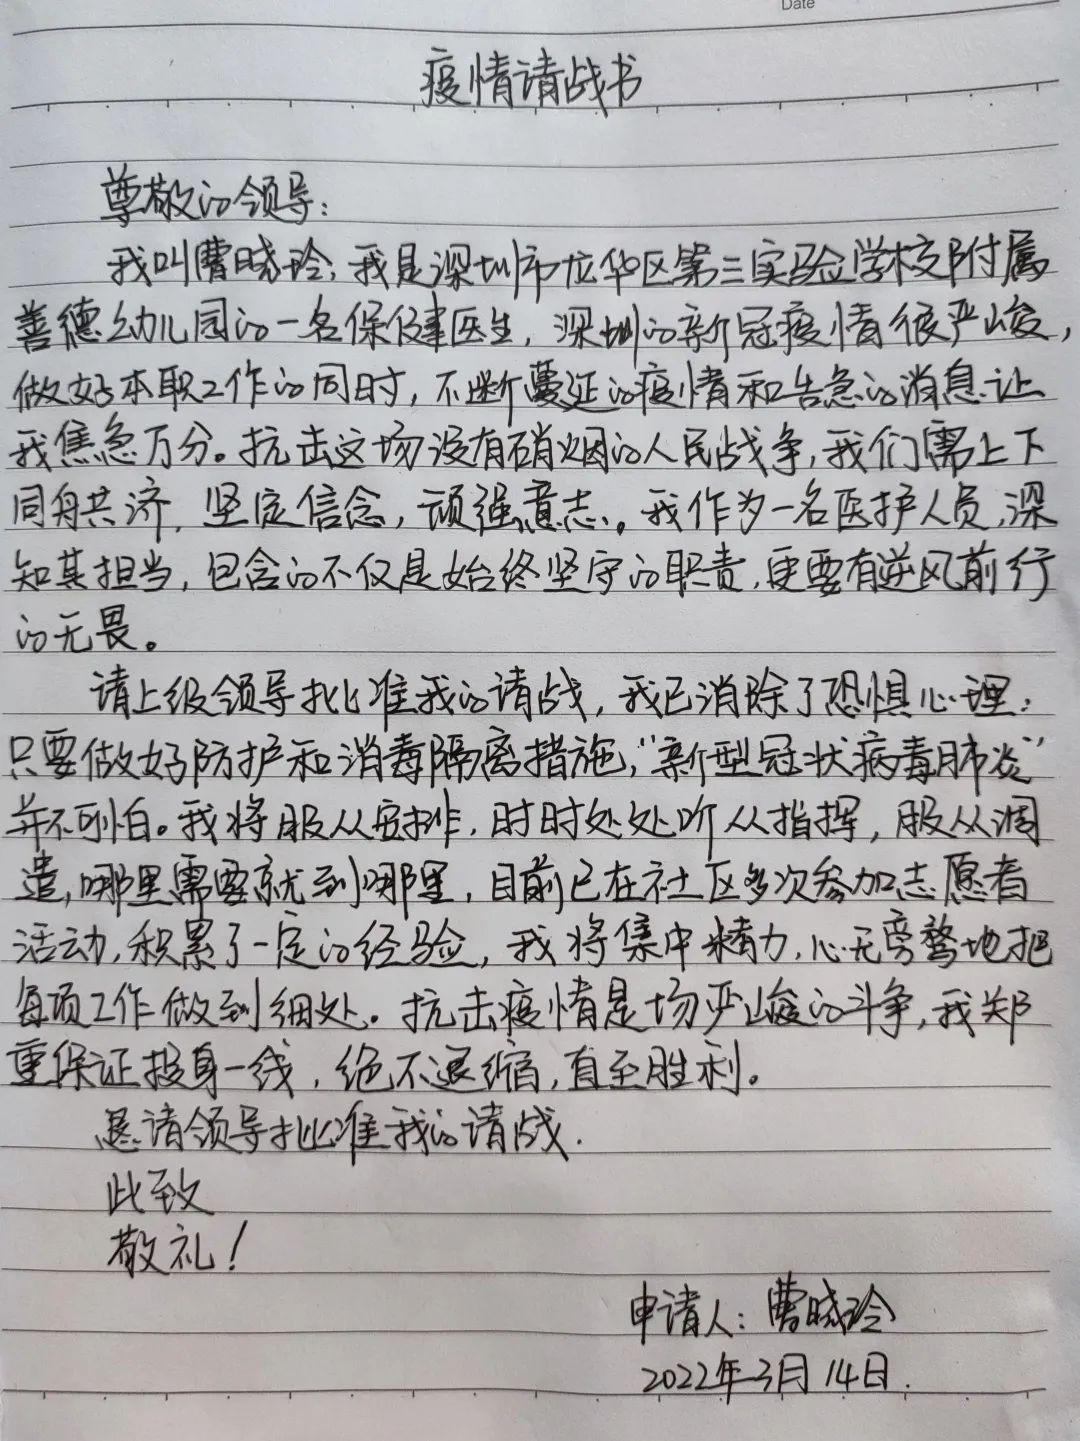 Date
疫情请战书
尊敬的领导:
我叫曹晓玲,我是深圳市龙华区第三实验学校附属
善德幼儿园的一名保健医生,深圳的新冠疫情很严峻,
做好本职工作的同时,不断蔓延的疫情和告急的消息让
我焦急万分。抗击这场没有硝烟的人民战争,我们需上下
同舟共济,坚定信念,顽强意志。我作为一名医护人员,深
知其担当,包含的不仅是始终坚守的职责,更要有逆风前行
的无畏。
请上级领导批准我的请战,我已消除了恐惧心理:
只要做好防护和消毒隔离措施,“新型冠状病毒肺炎”
并不可怕。我将服从安排,时时处处听从指挥,服从调
遣,哪里需要就到哪里,目前已在社区多次参加志愿者
活动,积累了一定的经验,我将集中精力,心无旁骛地把
每项工作做到细处。抗击疫情是场严峻的斗争,我郑
重保证投身一线,绝不退缩,直至胜利。
恳请领导批准我的请战.
此致
敬礼!
申请人:曹晓玲
2022年3月14日.